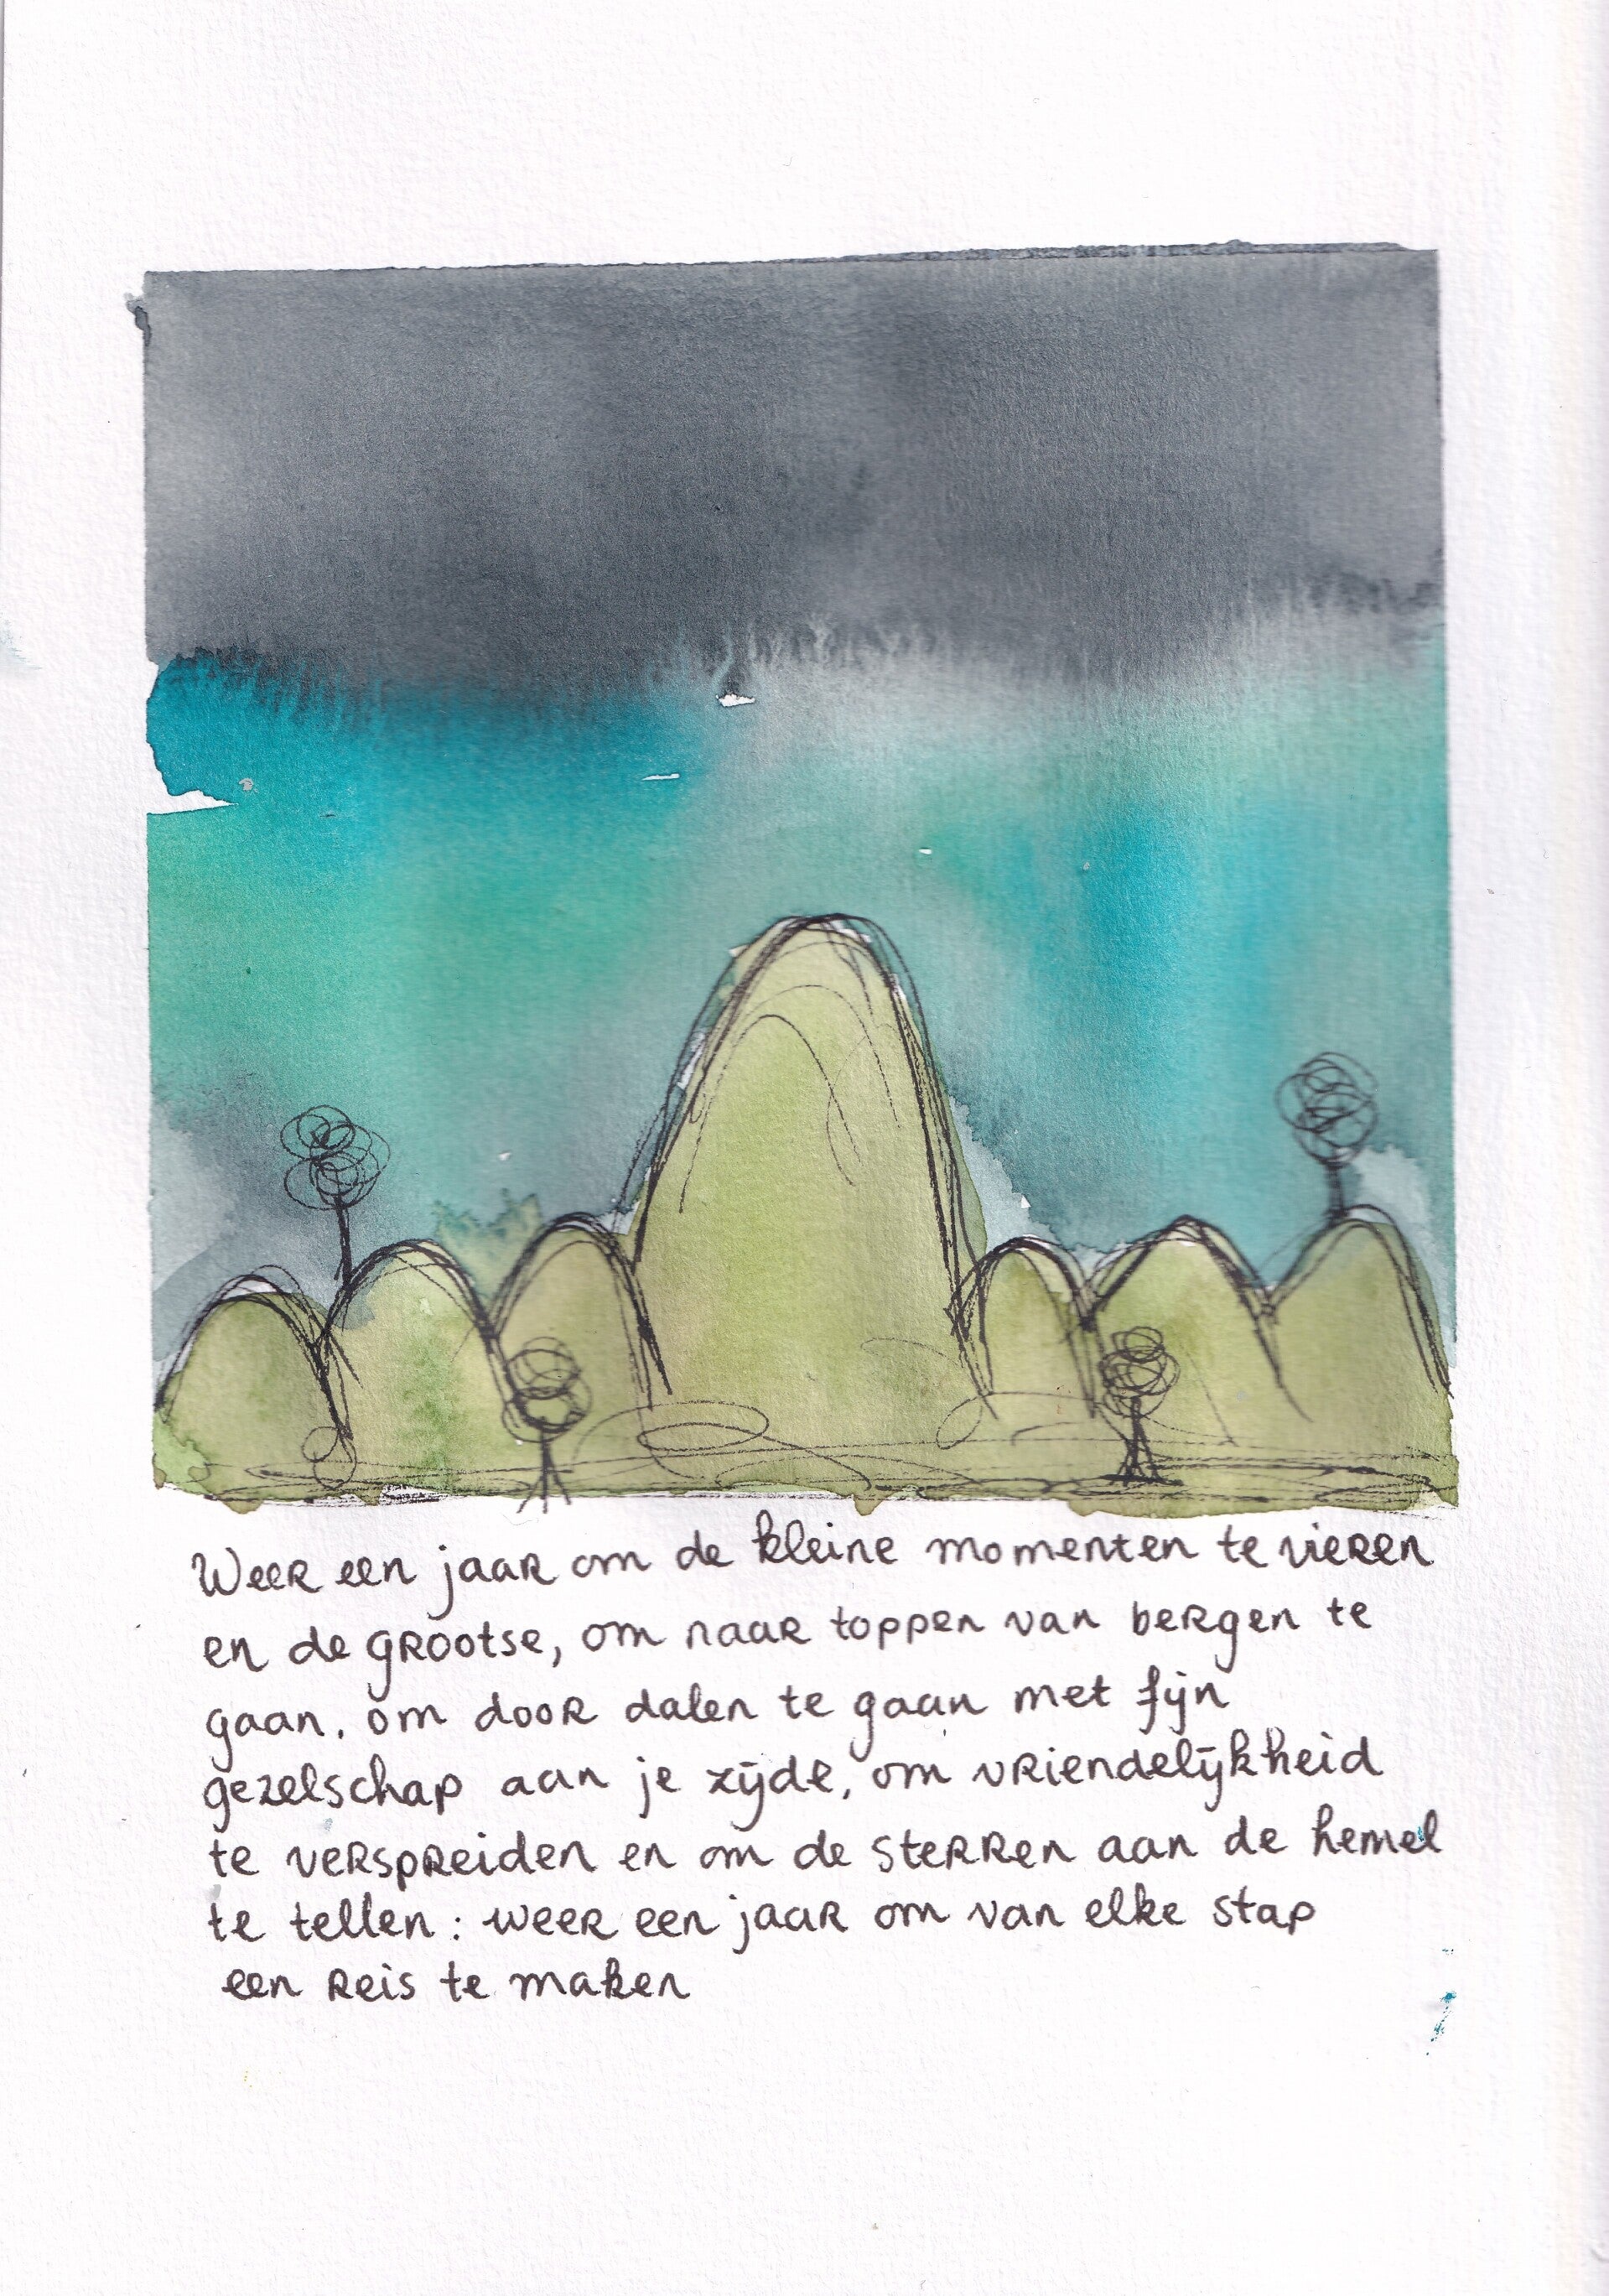 Weer een jaar om de kleine momenten te vieren
en de grootse, om naar toppen van bergen te
gaan. om door dalen te gaan met fijn
gezelschap aan je zijde, om vriendelijkheid
te verspreiden en om de sterren aan de hemel
te tellen: weer een jaar om van elke stap
een reis te maken